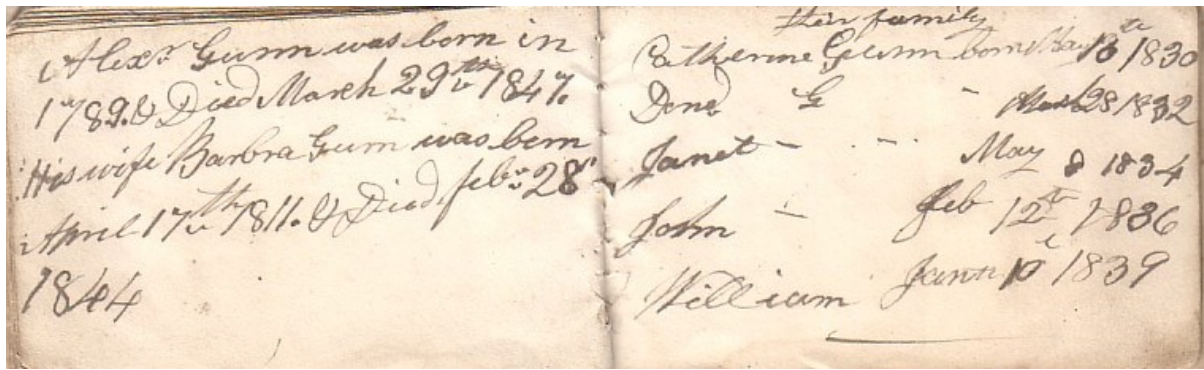 Alexr Gunn was born in
1789. & Died March 29th 1847.
His wife Barbra Gunn was born
April 17th 1811. & Died febr 28
1844
their family
Catherine Gunn born 1830
Dond G - March 28 1832
Janet - - - May 8 1834
John - feb 12th 1836
William Janu 10 1839